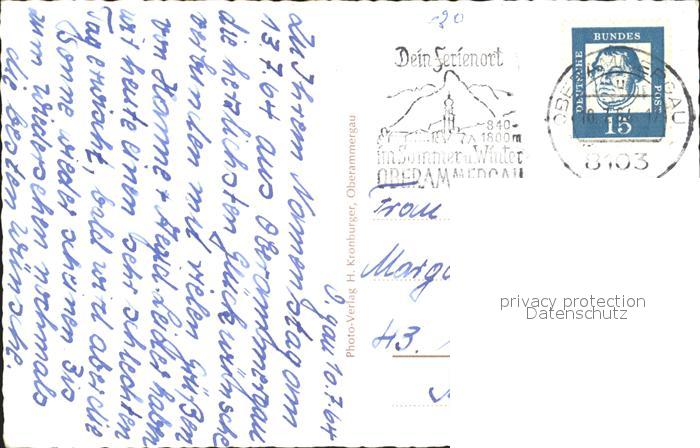 O.gau 10.7.64
Zu Ihrem Namenstag am
13.7.64 aus Oberammergau
die herzlichsten Glückwünsche
verbunden mit vielen Grüßen
von Hanne + Leider haben
wir heute einen sehr schlechten
Tag erwischt, bald wird aber die
Sonne wieder scheinen. Bis
zum Wiedersehen nochmals
die besten Wünsche.
Photo-Verlag H. Kronburger, Oberammergau
-20
Dein Ferienort
840-
1800m
im Sommer u. Winter
OBERAMMERGAU
DEUTSCHE
BUNDES
POST
15
OBERAMMERGAU
8103
Frau
Marga
43.
privacy protection
Datenschutz